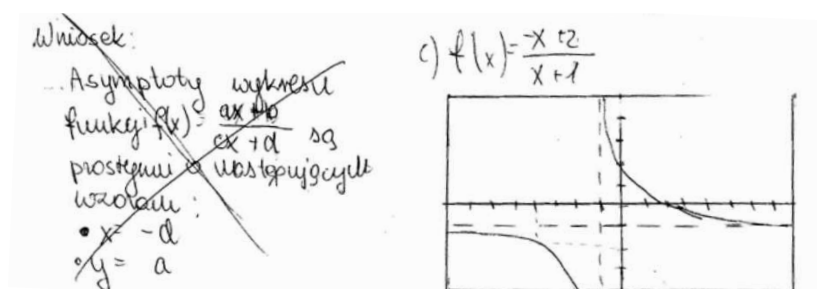 Wniosek:
Asymptoty wykresu
funkcji f(x) = ax+b / cx+d są
prostymi o następujących
wzorach:
• x= -d
• y = a
c) f(x) = -x+2 / x+1